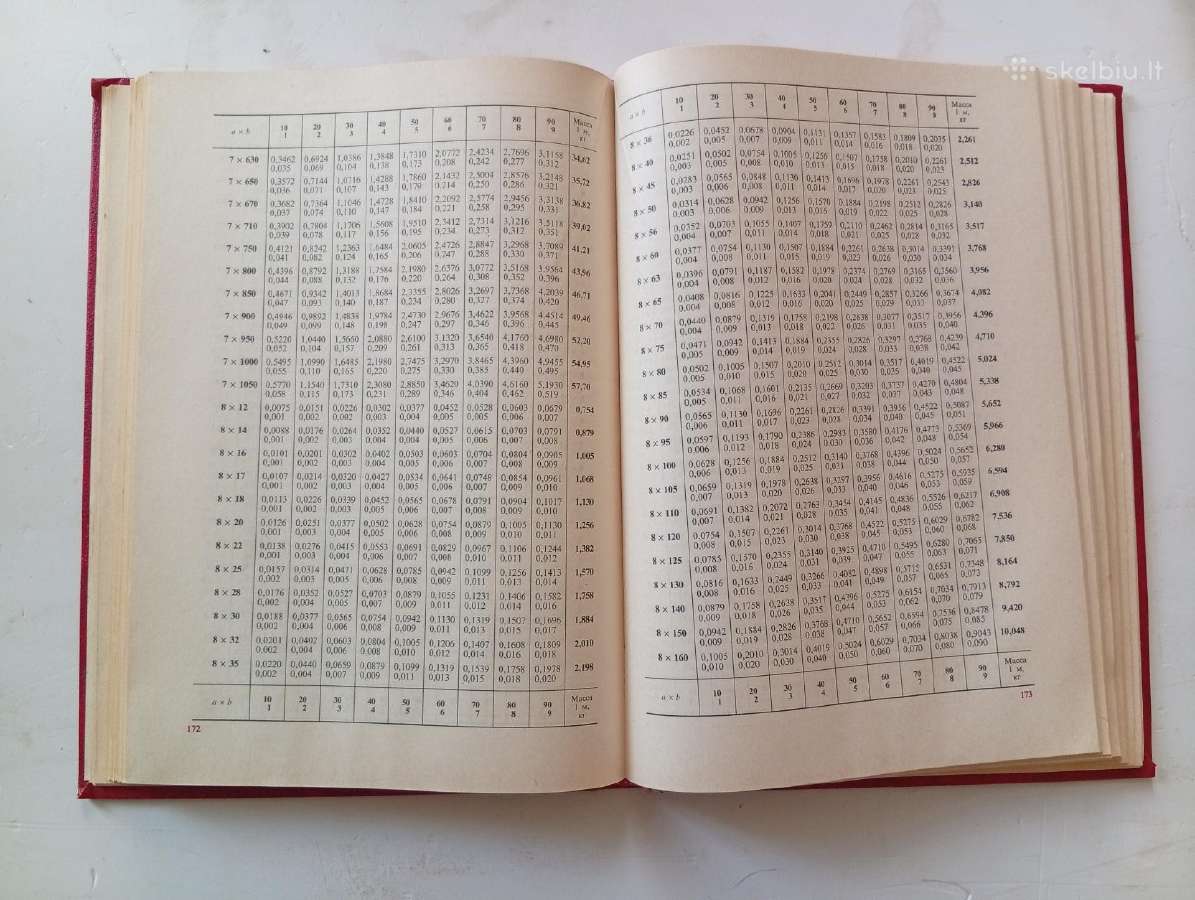 skelbiu.lt
a × b 10 20 30 40 50 60 70 80 90 Масса
1 2 3 4 5 6 7 8 9 1 м, кг
7 × 630 0,3462 0,6924 1,0386 1,3848 1,7310 2,0772 2,4234 2,7696 3,1158 34,62
0,035 0,069 0,104 0,138 0,173 0,208 0,242 0,277 0,312
7 × 650 0,3572 0,7144 1,0716 1,4288 1,7860 2,1432 2,5004 2,8576 3,2148 35,72
0,036 0,071 0,107 0,143 0,179 0,214 0,250 0,286 0,321
7 × 670 0,3682 0,7364 1,1046 1,4728 1,8410 2,2092 2,5774 2,9456 3,3138 36,82
0,037 0,074 0,110 0,147 0,184 0,221 0,258 0,295 0,331
7 × 710 0,3902 0,7804 1,1706 1,5608 1,9510 2,3412 2,7314 3,1216 3,5118 39,02
0,039 0,078 0,117 0,156 0,195 0,234 0,273 0,312 0,351
7 × 750 0,4121 0,8242 1,2363 1,6484 2,0605 2,4726 2,8847 3,2968 3,7089 41,21
0,041 0,082 0,124 0,165 0,206 0,247 0,288 0,330 0,371
7 × 800 0,4396 0,8792 1,3188 1,7584 2,1980 2,6376 3,0772 3,5168 3,9564 43,96
0,044 0,088 0,132 0,176 0,220 0,264 0,308 0,352 0,396
7 × 850 0,4671 0,9342 1,4013 1,8684 2,3355 2,8026 3,2697 3,7368 4,2039 46,71
0,047 0,093 0,140 0,187 0,234 0,280 0,327 0,374 0,420
7 × 900 0,4946 0,9892 1,4838 1,9784 2,4730 2,9676 3,4622 3,9568 4,4514 49,46
0,049 0,099 0,148 0,198 0,247 0,297 0,346 0,396 0,445
7 × 950 0,5220 1,0440 1,5660 2,0880 2,6100 3,1320 3,6540 4,1760 4,6980 52,20
0,052 0,104 0,157 0,209 0,261 0,313 0,365 0,418 0,470
7 × 1000 0,5495 1,0990 1,6485 2,1980 2,7475 3,2970 3,8465 4,3960 4,9455 54,95
0,055 0,110 0,165 0,220 0,275 0,330 0,385 0,440 0,495
7 × 1050 0,5770 1,1540 1,7310 2,3080 2,8850 3,4620 4,0390 4,6160 5,1930 57,70
0,058 0,115 0,173 0,231 0,289 0,346 0,404 0,462 0,519
8 × 12 0,0075 0,0151 0,0226 0,0302 0,0377 0,0452 0,0528 0,0603 0,0679 0,754
0,001 0,002 0,002 0,003 0,004 0,005 0,005 0,006 0,007
8 × 14 0,0088 0,0176 0,0264 0,0352 0,0440 0,0527 0,0615 0,0703 0,0791 0,879
0,001 0,002 0,003 0,004 0,004 0,005 0,006 0,007 0,008
8 × 16 0,0101 0,0201 0,0302 0,0402 0,0503 0,0603 0,0704 0,0804 0,0905 1,005
0,001 0,002 0,003 0,004 0,005 0,006 0,007 0,008 0,009
8 × 17 0,0107 0,0214 0,0320 0,0427 0,0534 0,0641 0,0748 0,0854 0,0961 1,068
0,001 0,002 0,003 0,004 0,005 0,006 0,007 0,009 0,010
8 × 18 0,0113 0,0226 0,0339 0,0452 0,0565 0,0678 0,0791 0,0904 0,1017 1,130
0,001 0,002 0,003 0,005 0,006 0,007 0,008 0,009 0,010
8 × 20 0,0126 0,0251 0,0377 0,0502 0,0628 0,0754 0,0879 0,1005 0,1130 1,256
0,001 0,003 0,004 0,005 0,006 0,008 0,009 0,010 0,011
8 × 22 0,0138 0,0276 0,0415 0,0553 0,0691 0,0829 0,0967 0,1106 0,1244 1,382
0,001 0,003 0,004 0,006 0,007 0,008 0,010 0,011 0,012
8 × 25 0,0157 0,0314 0,0471 0,0628 0,0785 0,0942 0,1099 0,1256 0,1413 1,570
0,002 0,003 0,005 0,006 0,008 0,009 0,011 0,013 0,014
8 × 28 0,0176 0,0352 0,0527 0,0703 0,0879 0,1055 0,1231 0,1406 0,1582 1,758
0,002 0,004 0,005 0,007 0,009 0,011 0,012 0,014 0,016
8 × 30 0,0188 0,0377 0,0565 0,0754 0,0942 0,1130 0,1319 0,1507 0,1696 1,884
0,002 0,004 0,006 0,008 0,009 0,011 0,013 0,015 0,017
8 × 32 0,0201 0,0402 0,0603 0,0804 0,1005 0,1206 0,1407 0,1608 0,1809 2,010
0,002 0,004 0,006 0,008 0,010 0,012 0,014 0,016 0,018
8 × 35 0,0220 0,0440 0,0659 0,0879 0,1099 0,1319 0,1539 0,1758 0,1978 2,198
0,002 0,004 0,007 0,009 0,011 0,013 0,015 0,018 0,020
a × b 10 20 30 40 50 60 70 80 90 Масса
1 2 3 4 5 6 7 8 9 1 м, кг
172
a × b 10 20 30 40 50 60 70 80 90 Масса
1 2 3 4 5 6 7 8 9 1 м, кг
8 × 36 0,0226 0,0452 0,0678 0,0904 0,1131 0,1357 0,1583 0,1809 0,2035 2,261
0,002 0,005 0,007 0,009 0,011 0,014 0,016 0,018 0,020
8 × 40 0,0251 0,0502 0,0754 0,1005 0,1256 0,1507 0,1758 0,2010 0,2261 2,512
0,003 0,005 0,008 0,010 0,013 0,015 0,018 0,020 0,023
8 × 45 0,0283 0,0565 0,0848 0,1130 0,1413 0,1696 0,1978 0,2261 0,2543 2,826
0,003 0,006 0,008 0,011 0,014 0,017 0,020 0,023 0,025
8 × 50 0,0314 0,0628 0,0942 0,1256 0,1570 0,1884 0,2198 0,2512 0,2826 3,140
0,003 0,006 0,009 0,013 0,016 0,019 0,022 0,025 0,028
8 × 56 0,0352 0,0703 0,1055 0,1407 0,1759 0,2110 0,2462 0,2814 0,3165 3,517
0,004 0,007 0,011 0,014 0,018 0,021 0,025 0,028 0,032
8 × 60 0,0377 0,0754 0,1130 0,1507 0,1884 0,2261 0,2638 0,3014 0,3391 3,768
0,004 0,008 0,011 0,015 0,019 0,023 0,026 0,030 0,034
8 × 63 0,0396 0,0791 0,1187 0,1582 0,1978 0,2374 0,2769 0,3165 0,3560 3,956
0,004 0,008 0,012 0,016 0,020 0,024 0,028 0,032 0,036
8 × 65 0,0408 0,0816 0,1225 0,1633 0,2041 0,2449 0,2857 0,3266 0,3674 4,082
0,004 0,008 0,012 0,016 0,020 0,025 0,029 0,033 0,037
8 × 70 0,0440 0,0879 0,1319 0,1758 0,2198 0,2638 0,3077 0,3517 0,3956 4,396
0,004 0,009 0,013 0,018 0,022 0,026 0,031 0,035 0,040
8 × 75 0,0471 0,0942 0,1413 0,1884 0,2355 0,2826 0,3297 0,3768 0,4239 4,710
0,005 0,009 0,014 0,019 0,024 0,028 0,033 0,038 0,042
8 × 80 0,0502 0,1005 0,1507 0,2010 0,2512 0,3014 0,3517 0,4019 0,4522 5,024
0,005 0,010 0,015 0,020 0,025 0,030 0,035 0,040 0,045
8 × 85 0,0534 0,1068 0,1601 0,2135 0,2669 0,3203 0,3737 0,4270 0,4804 5,338
0,005 0,011 0,016 0,021 0,027 0,032 0,037 0,043 0,048
8 × 90 0,0565 0,1130 0,1696 0,2261 0,2826 0,3391 0,3956 0,4522 0,5087 5,652
0,006 0,011 0,017 0,023 0,028 0,034 0,040 0,045 0,051
8 × 95 0,0597 0,1193 0,1790 0,2386 0,2983 0,3580 0,4176 0,4773 0,5369 5,966
0,006 0,012 0,018 0,024 0,030 0,036 0,042 0,048 0,054
8 × 100 0,0628 0,1256 0,1884 0,2512 0,3140 0,3768 0,4396 0,5024 0,5652 6,280
0,006 0,013 0,019 0,025 0,031 0,038 0,044 0,050 0,057
8 × 105 0,0659 0,1319 0,1978 0,2638 0,3297 0,3956 0,4616 0,5275 0,5935 6,594
0,007 0,013 0,020 0,026 0,033 0,040 0,046 0,053 0,059
8 × 110 0,0691 0,1382 0,2072 0,2763 0,3454 0,4145 0,4836 0,5526 0,6217 6,908
0,007 0,014 0,021 0,028 0,035 0,041 0,048 0,055 0,062
8 × 120 0,0754 0,1507 0,2261 0,3014 0,3768 0,4522 0,5275 0,6029 0,6782 7,536
0,008 0,015 0,023 0,030 0,038 0,045 0,053 0,060 0,068
8 × 125 0,0785 0,1570 0,2355 0,3140 0,3925 0,4710 0,5495 0,6280 0,7065 7,850
0,008 0,016 0,024 0,031 0,039 0,047 0,055 0,063 0,071
8 × 130 0,0816 0,1633 0,2449 0,3266 0,4082 0,4898 0,5715 0,6531 0,7348 8,164
0,008 0,016 0,025 0,033 0,041 0,049 0,057 0,065 0,073
8 × 140 0,0879 0,1758 0,2638 0,3517 0,4396 0,5275 0,6154 0,7034 0,7913 8,792
0,009 0,018 0,026 0,035 0,044 0,053 0,062 0,070 0,079
8 × 150 0,0942 0,1884 0,2826 0,3768 0,4710 0,5652 0,6594 0,7536 0,8478 9,420
0,009 0,019 0,028 0,038 0,047 0,057 0,066 0,075 0,085
8 × 160 0,1005 0,2010 0,3014 0,4019 0,5024 0,6029 0,7034 0,8038 0,9043 10,048
0,010 0,020 0,030 0,040 0,050 0,060 0,070 0,080 0,090
a × b 10 20 30 40 50 60 70 80 90 Масса
1 2 3 4 5 6 7 8 9 1 м, кг
173